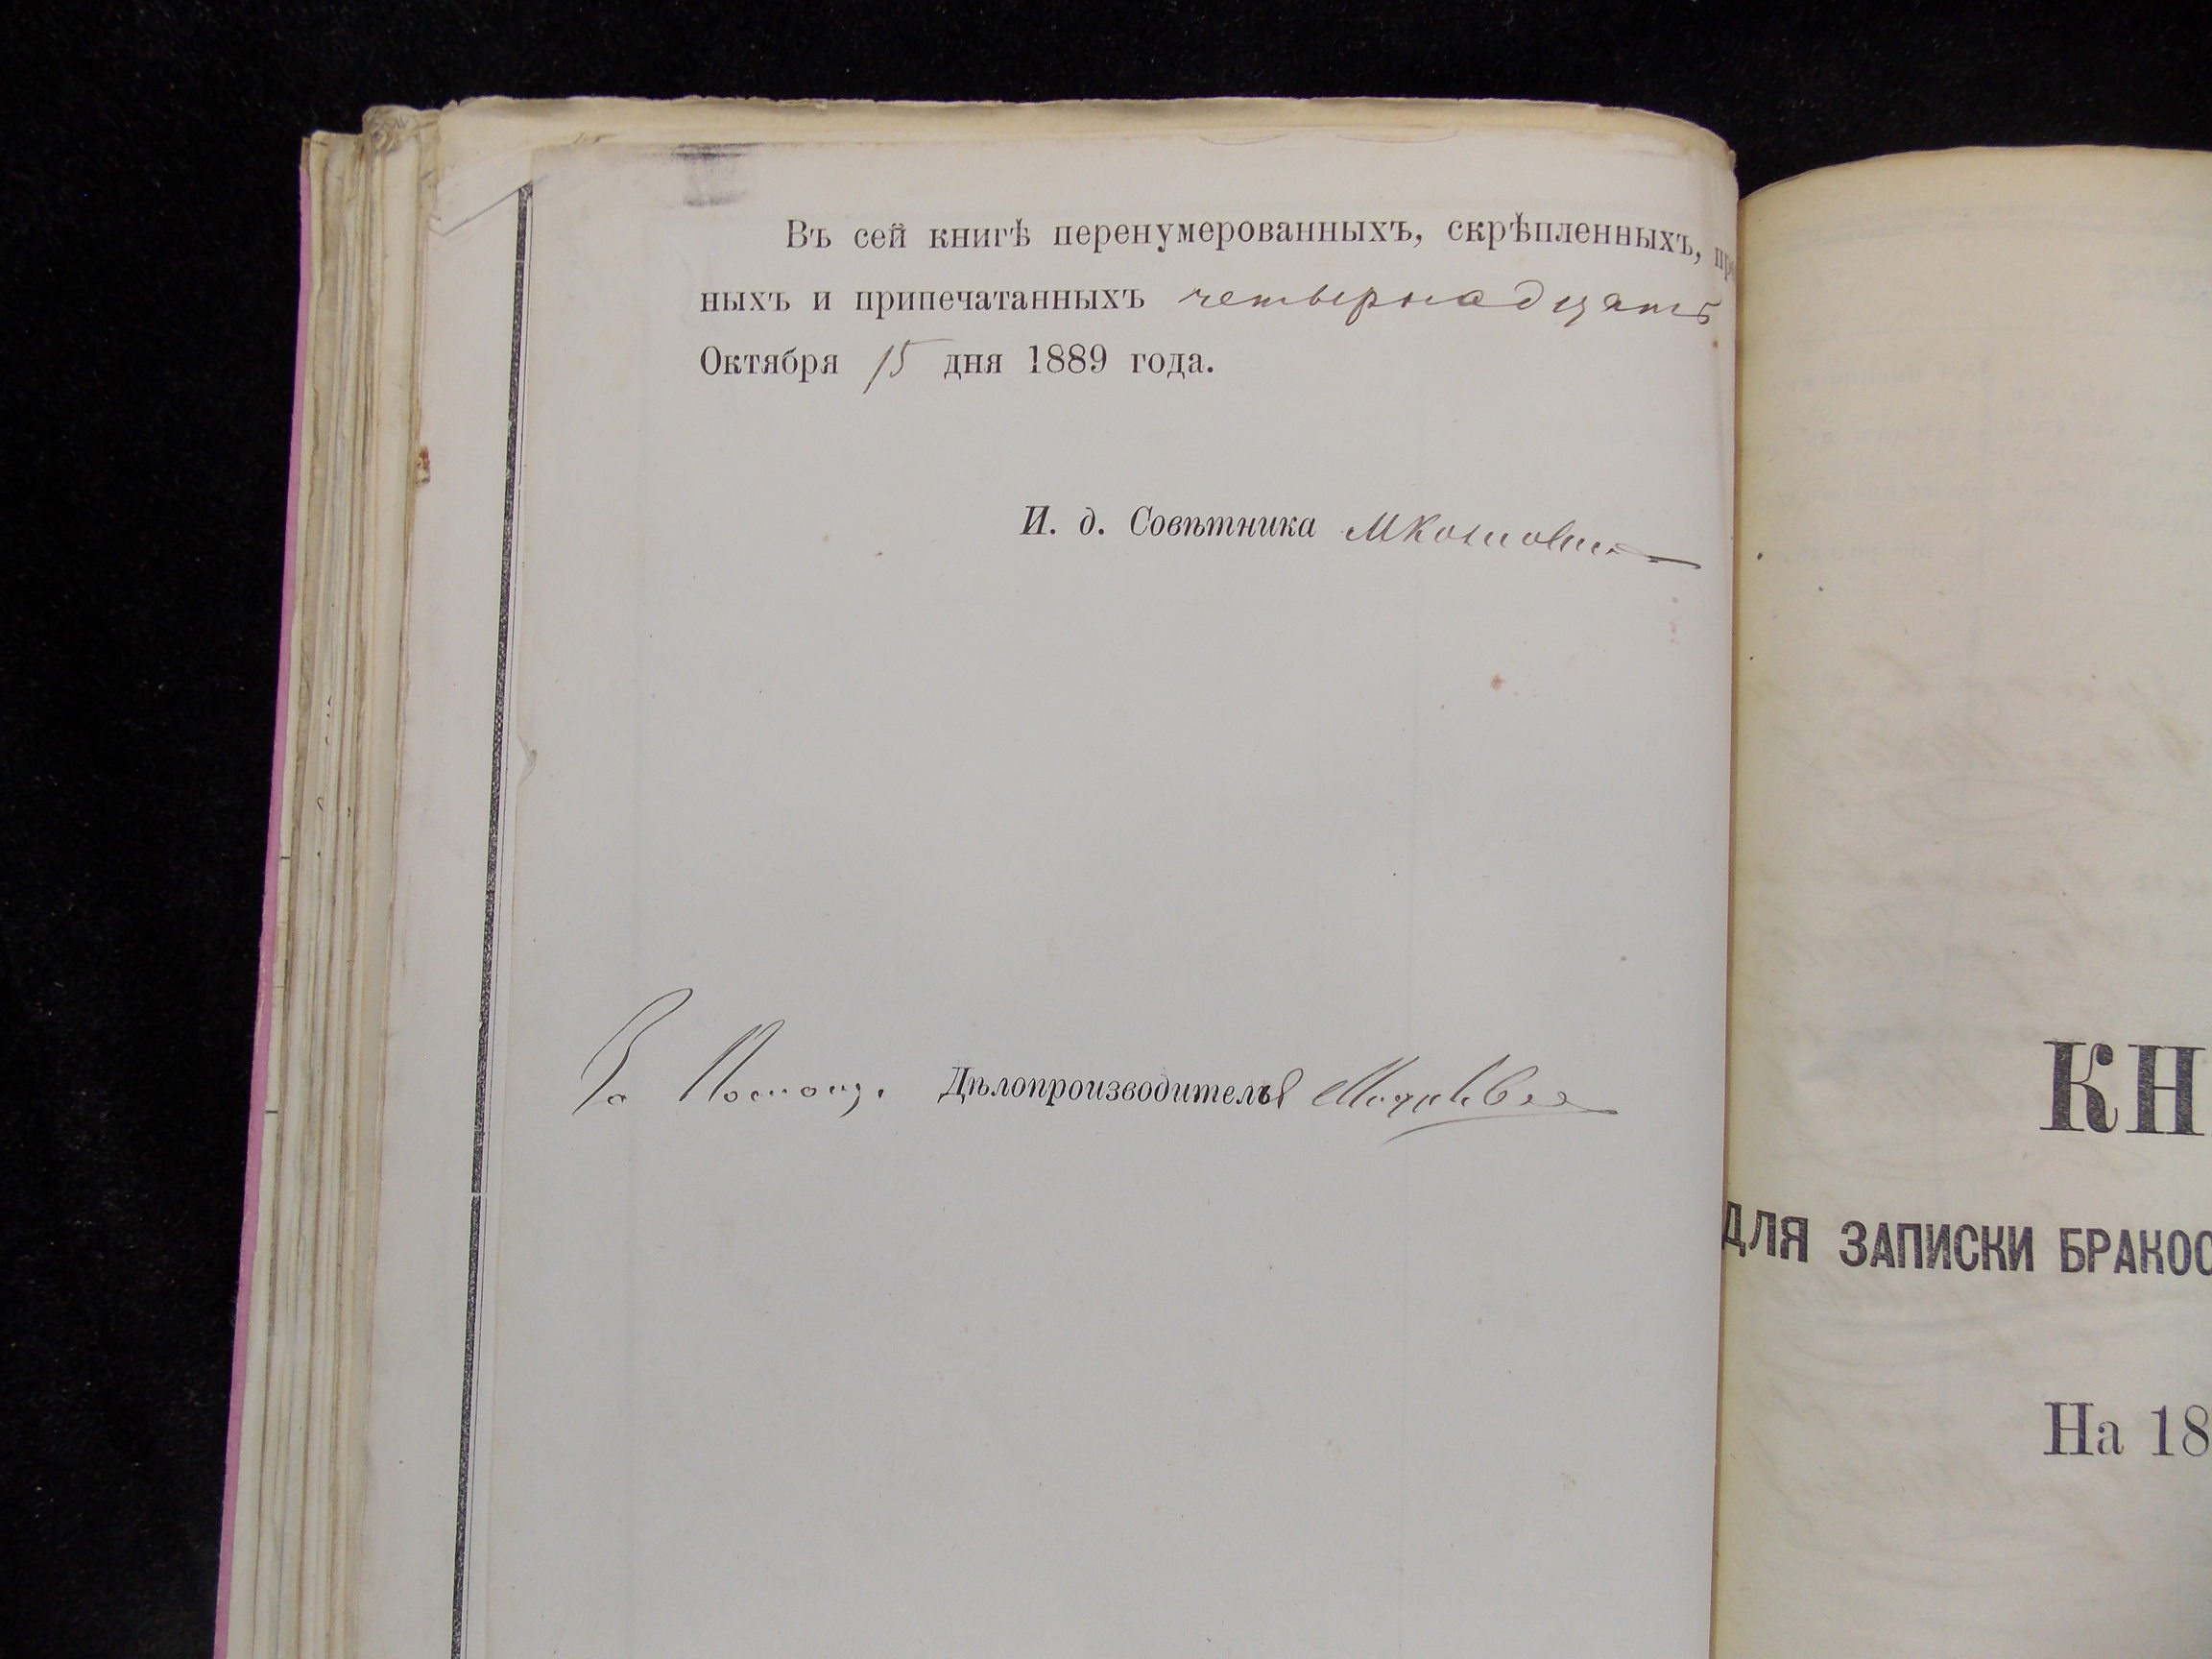 Въ сей книгѣ перенумерованныхъ, скрѣпленныхъ, про
ныхъ и припечатанныхъ четырнадцать
Октября 15 дня 1889 года.
И. д. Совѣтника
За Помощ. Дѣлопроизводителя
КН
ДЛЯ ЗАПИСКИ БРАКОС
На 18